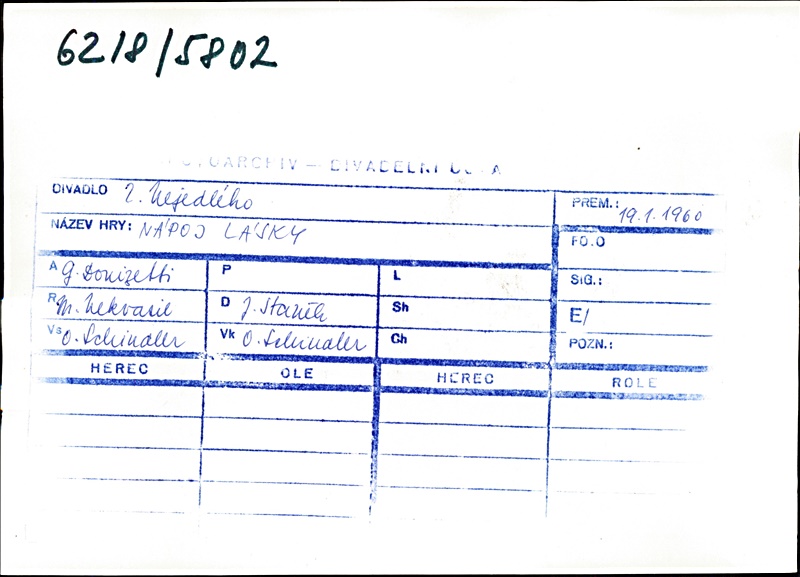 6218/5802
FOTOARCHIV — DIVADELNÍ ÚSTAV
DIVADLO Z. Nejedlého PREM.: 19.1.1960
NÁZEV HRY: NÁPOJ LÁSKY FO.O
A G. Donizetti P L SIG.:
R M. Nekvasil D J. Staněk Sh E/
Vs O. Schindler Vk O. Schindler Ch POZN.:
HEREC OLE HEREC ROLE